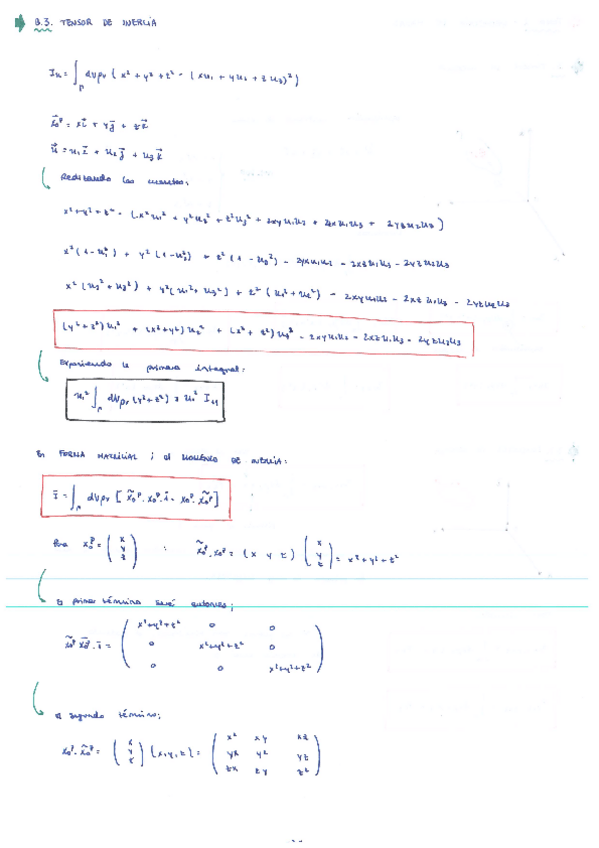 8.3. TENSOR DE INERCIA
Iu = ∫ dVρr (x² + y² + z² - (xu₁ + yu₂ + zu₃)²)
x⃗₀ᵖ = xi⃗ + yj⃗ + zk⃗
u⃗ = u₁i⃗ + u₂j⃗ + u₃k⃗
Realizando las cuentas:
x² + y² + z² - (x²u₁² + y²u₂² + z²u₃² + 2xyu₁u₂ + 2xu₁u₃ + 2yzu₂u₃)
x²(1-u₁²) + y²(1-u₂²) + z²(1-u₃²) - 2yxu₁u₂ - 2xzu₁u₃ - 2yzu₂u₃
x²(u₂²+u₃²) + y²(u₁²+u₃²) + z²(u₁²+u₂²) - 2xyu₁u₂ - 2xzu₁u₃ - 2yzu₂u₃
(y²+z²)u₁² + (x²+y²)u₂² + (x²+z²)u₃² - 2xyu₁u₂ - 2xzu₁u₃ - 2yzu₂u₃
la primera integral:
u₁² ∫ dVρr (y²+z²) = u₁² I₁₁
En FORMA MATRICIAL ; el MOMENTO DE INERCIA:
I = ∫ dVρr [ x̃₀ᵖ · x₀ᵖ · i - x₀ᵖ · x̃₀ᵖ ]
Para x₀ᵖ = (x y z) : x̃₀ᵖ · x₀ᵖ = (x y z) (x y z) = x²+y²+z²
El primer término será entonces;
x̃₀ᵖ x₀ᵖ · i = ( x²+y²+z² 0 0
0 x²+y²+z² 0
0 0 x²+y²+z² )
El segundo término;
x₀ᵖ · x̃₀ᵖ = (x y z) (x, y, z) = ( x² xy xz
yx y² yz
zx zy z² )